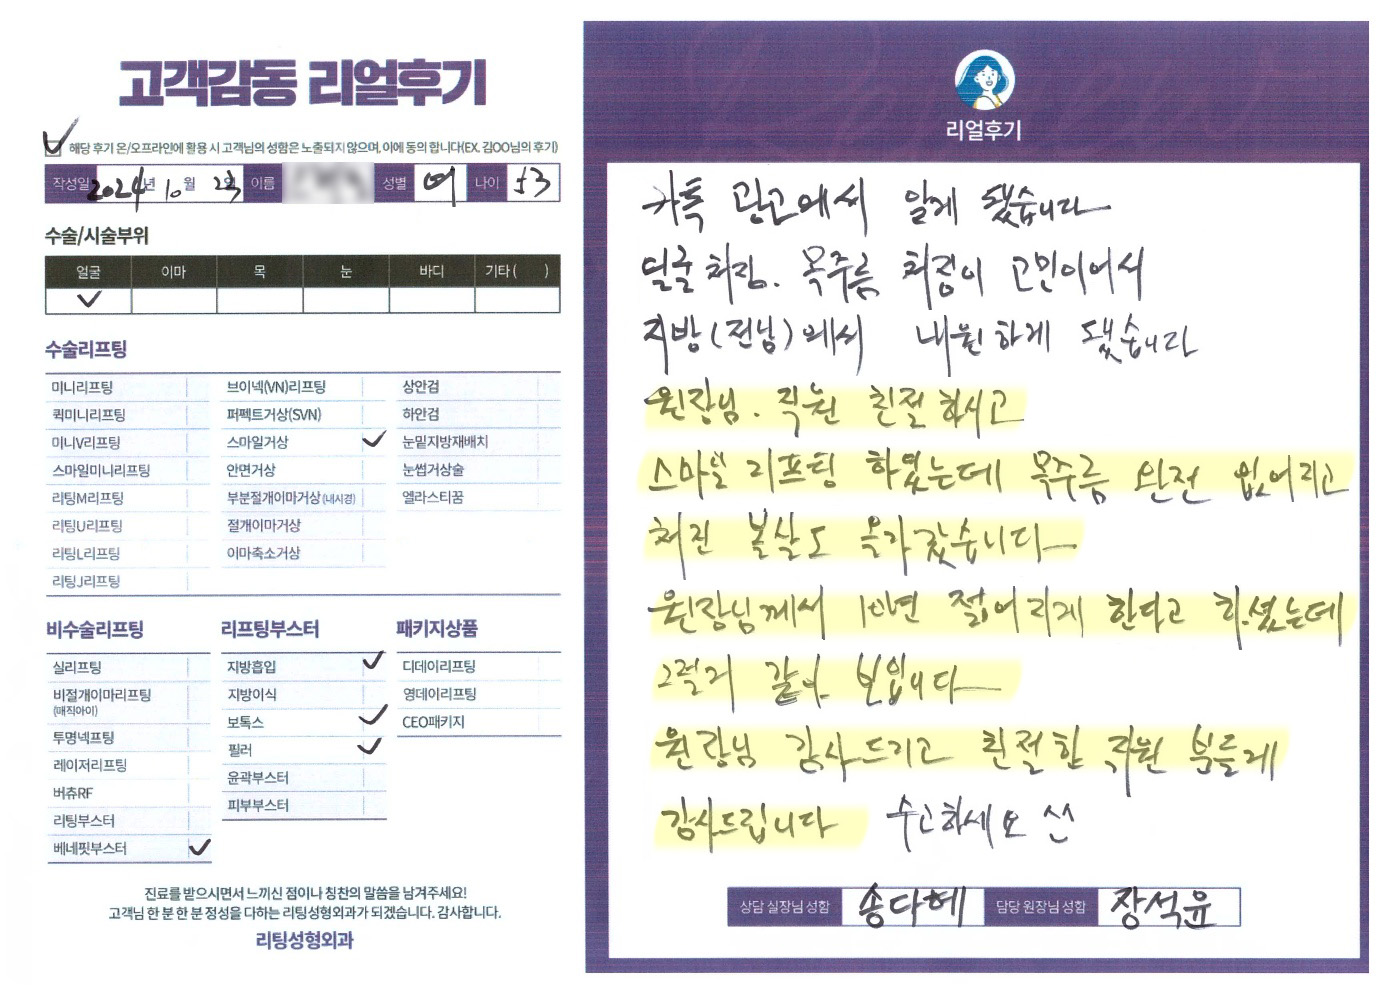 고객감동 리얼후기
해당 후기 온/오프라인에 활용 시 고객님의 성함은 노출되지 않으며, 이에 동의 합니다(EX. 김OO님의 후기)
작성일 2024년 10월 23일 이름 성별 여 나이 53
수술/시술부위
얼굴 이마 목 눈 바디 기타( )
수술리프팅
미니리프팅 브이넥(VN)리프팅 상안검
퀵미니리프팅 퍼펙트거상(SVN) 하안검
미니V리프팅 스마일거상 눈밑지방재배치
스마일미니리프팅 안면거상 눈썹거상술
리팅M리프팅 부분절개이마거상(내시경) 엘라스티꿈
리팅U리프팅 절개이마거상
리팅L리프팅 이마축소거상
리팅J리프팅
비수술리프팅 리프팅부스터 패키지상품
실리프팅 지방흡입 디데이리프팅
비절개이마리프팅 지방이식 영데이리프팅
(매직아이)
보톡스 CEO패키지
투명넥프팅 필러
레이저리프팅 윤곽부스터
버츄RF 피부부스터
리팅부스터
베네핏부스터
진료를 받으시면서 느끼신 점이나 칭찬의 말씀을 남겨주세요!
고객님 한 분 한 분 정성을 다하는 리팅성형외과가 되겠습니다. 감사합니다.
리팅성형외과
리얼후기
카톡 광고에서 알게 됐습니다
얼굴처짐. 목주름 처짐이 고민이어서
지방(전남)에서 내원하게 됐습니다
원장님. 직원 친절하시고
스마일 리프팅 하였는데 목주름 완전 없어지고
처진 볼살도 올라갔습니다
원장님께서 10년 젊어지게 한다고 하셨는데
그렇게 같아 보입니다
원장님 감사드리고 친절한 직원 분들게
감사드립니다 수고하세요
상담 실장님 성함 송다혜 담당 원장님 성함 장석윤